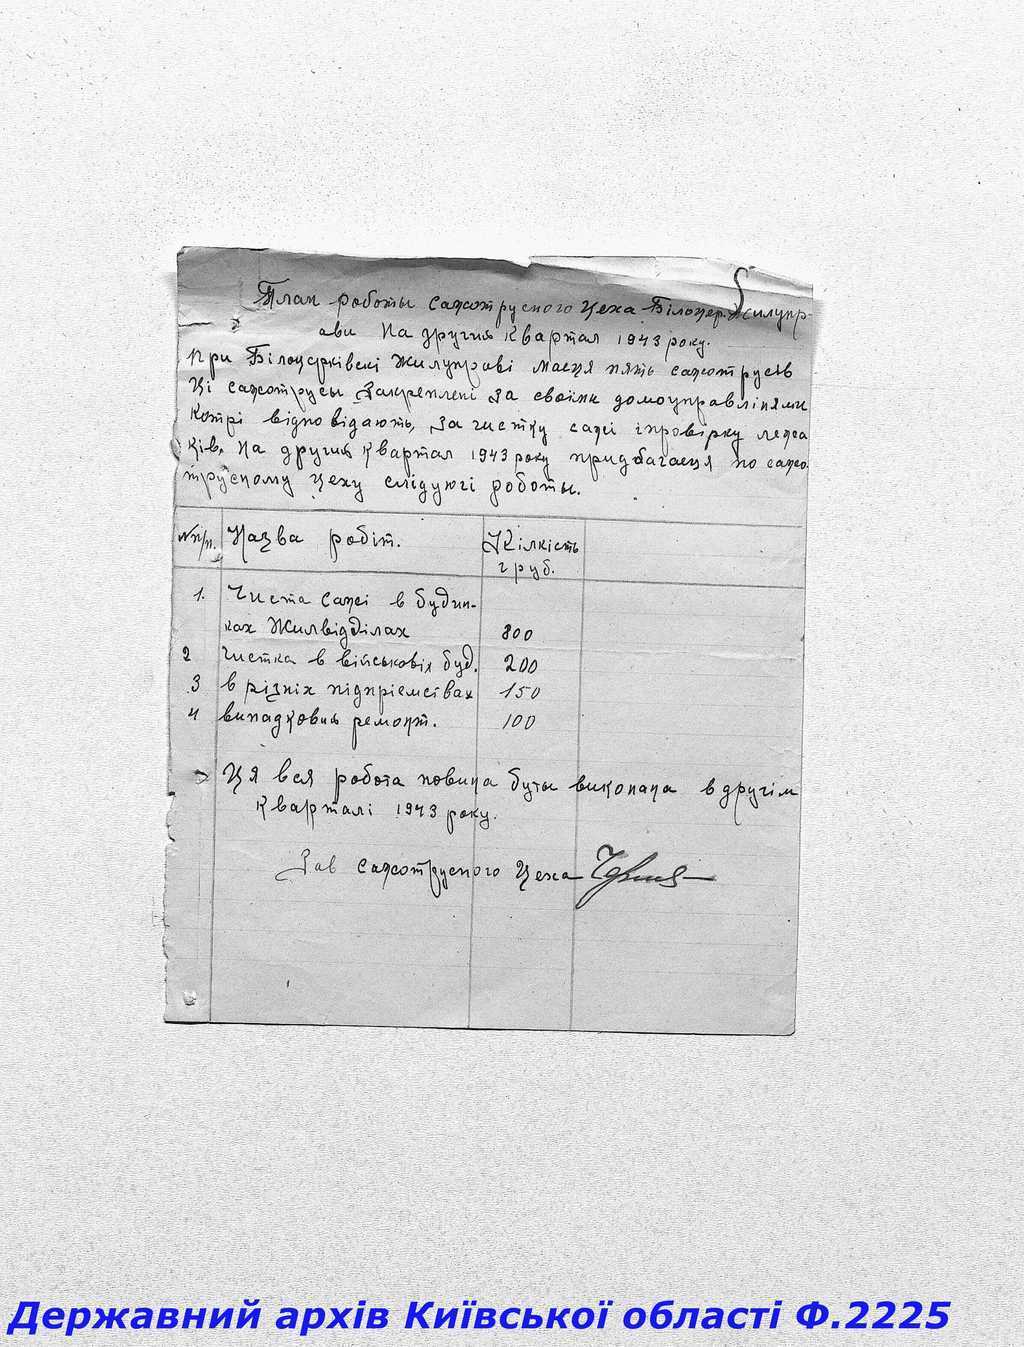 План роботы сажотрусного цеха Білоцер. Жилупр-
ави На другий квартал 1943 року.
При Білоцерківскі Жилуправі маеця пять сажотрусів
Ці сажотрусы закреплені за своїми домоуправлінями
Котрі відповідають, за чистку сажі і провірку лежа
ків. На другий квартал 1943 року придбагаеця по сажо
трусному цеху слідуючі роботы.
№ п/п. Назва робіт. Кілкість
груб.
1. Чиста сажі в будин-
ках Жилвідділах 800
2 чистка в військовіх буд. 200
3 в різніх підпріемсівах 150
4 випадковий ремонт. 100
Ця вся робота повина буты виконана в другім
кварталі 1943 року.
Зав сажотрусного цеха
Державний архів Київської області Ф.2225